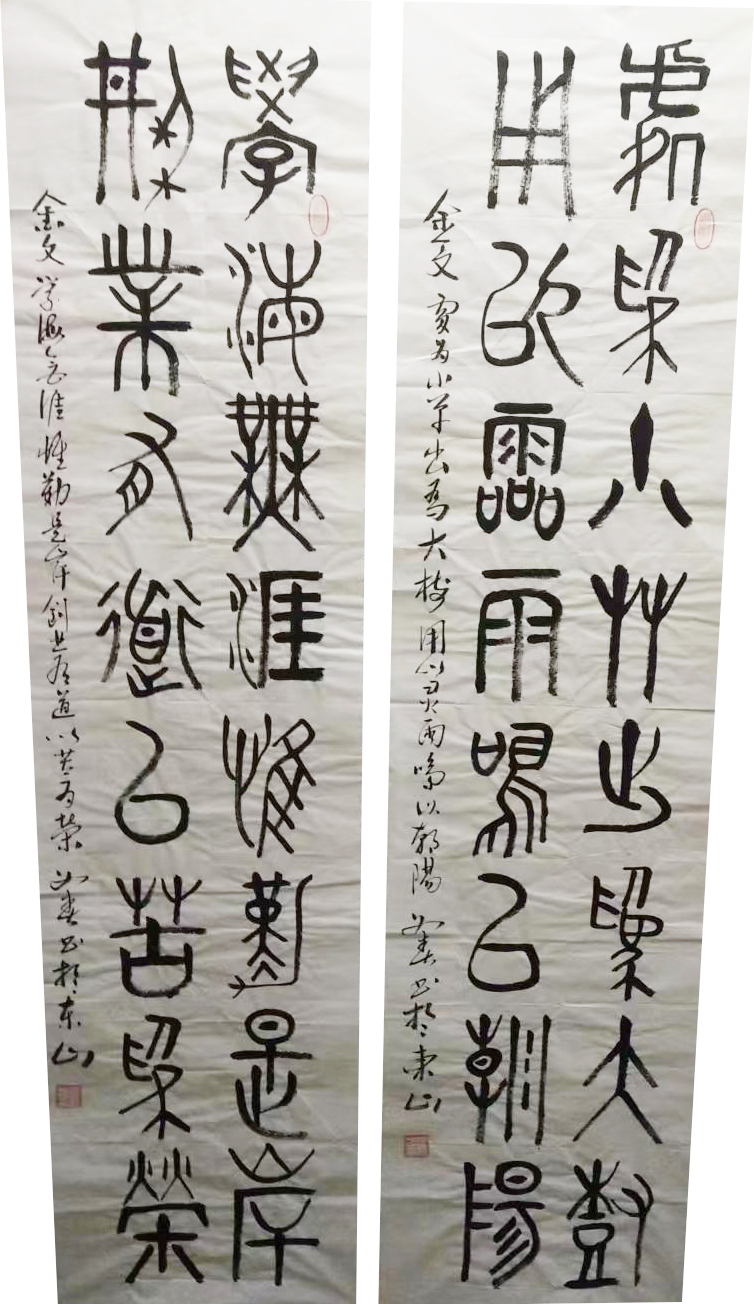 處為小艸出為大樹
用以靈雨鳴以朝陽
金文 處為小草出為大樹用以灵雨鳴以朝陽 書於東山
學海無涯惟勤是岸
創業有道以苦為榮
金文 学海無涯惟勤是岸創業有道以苦為榮 書於東山